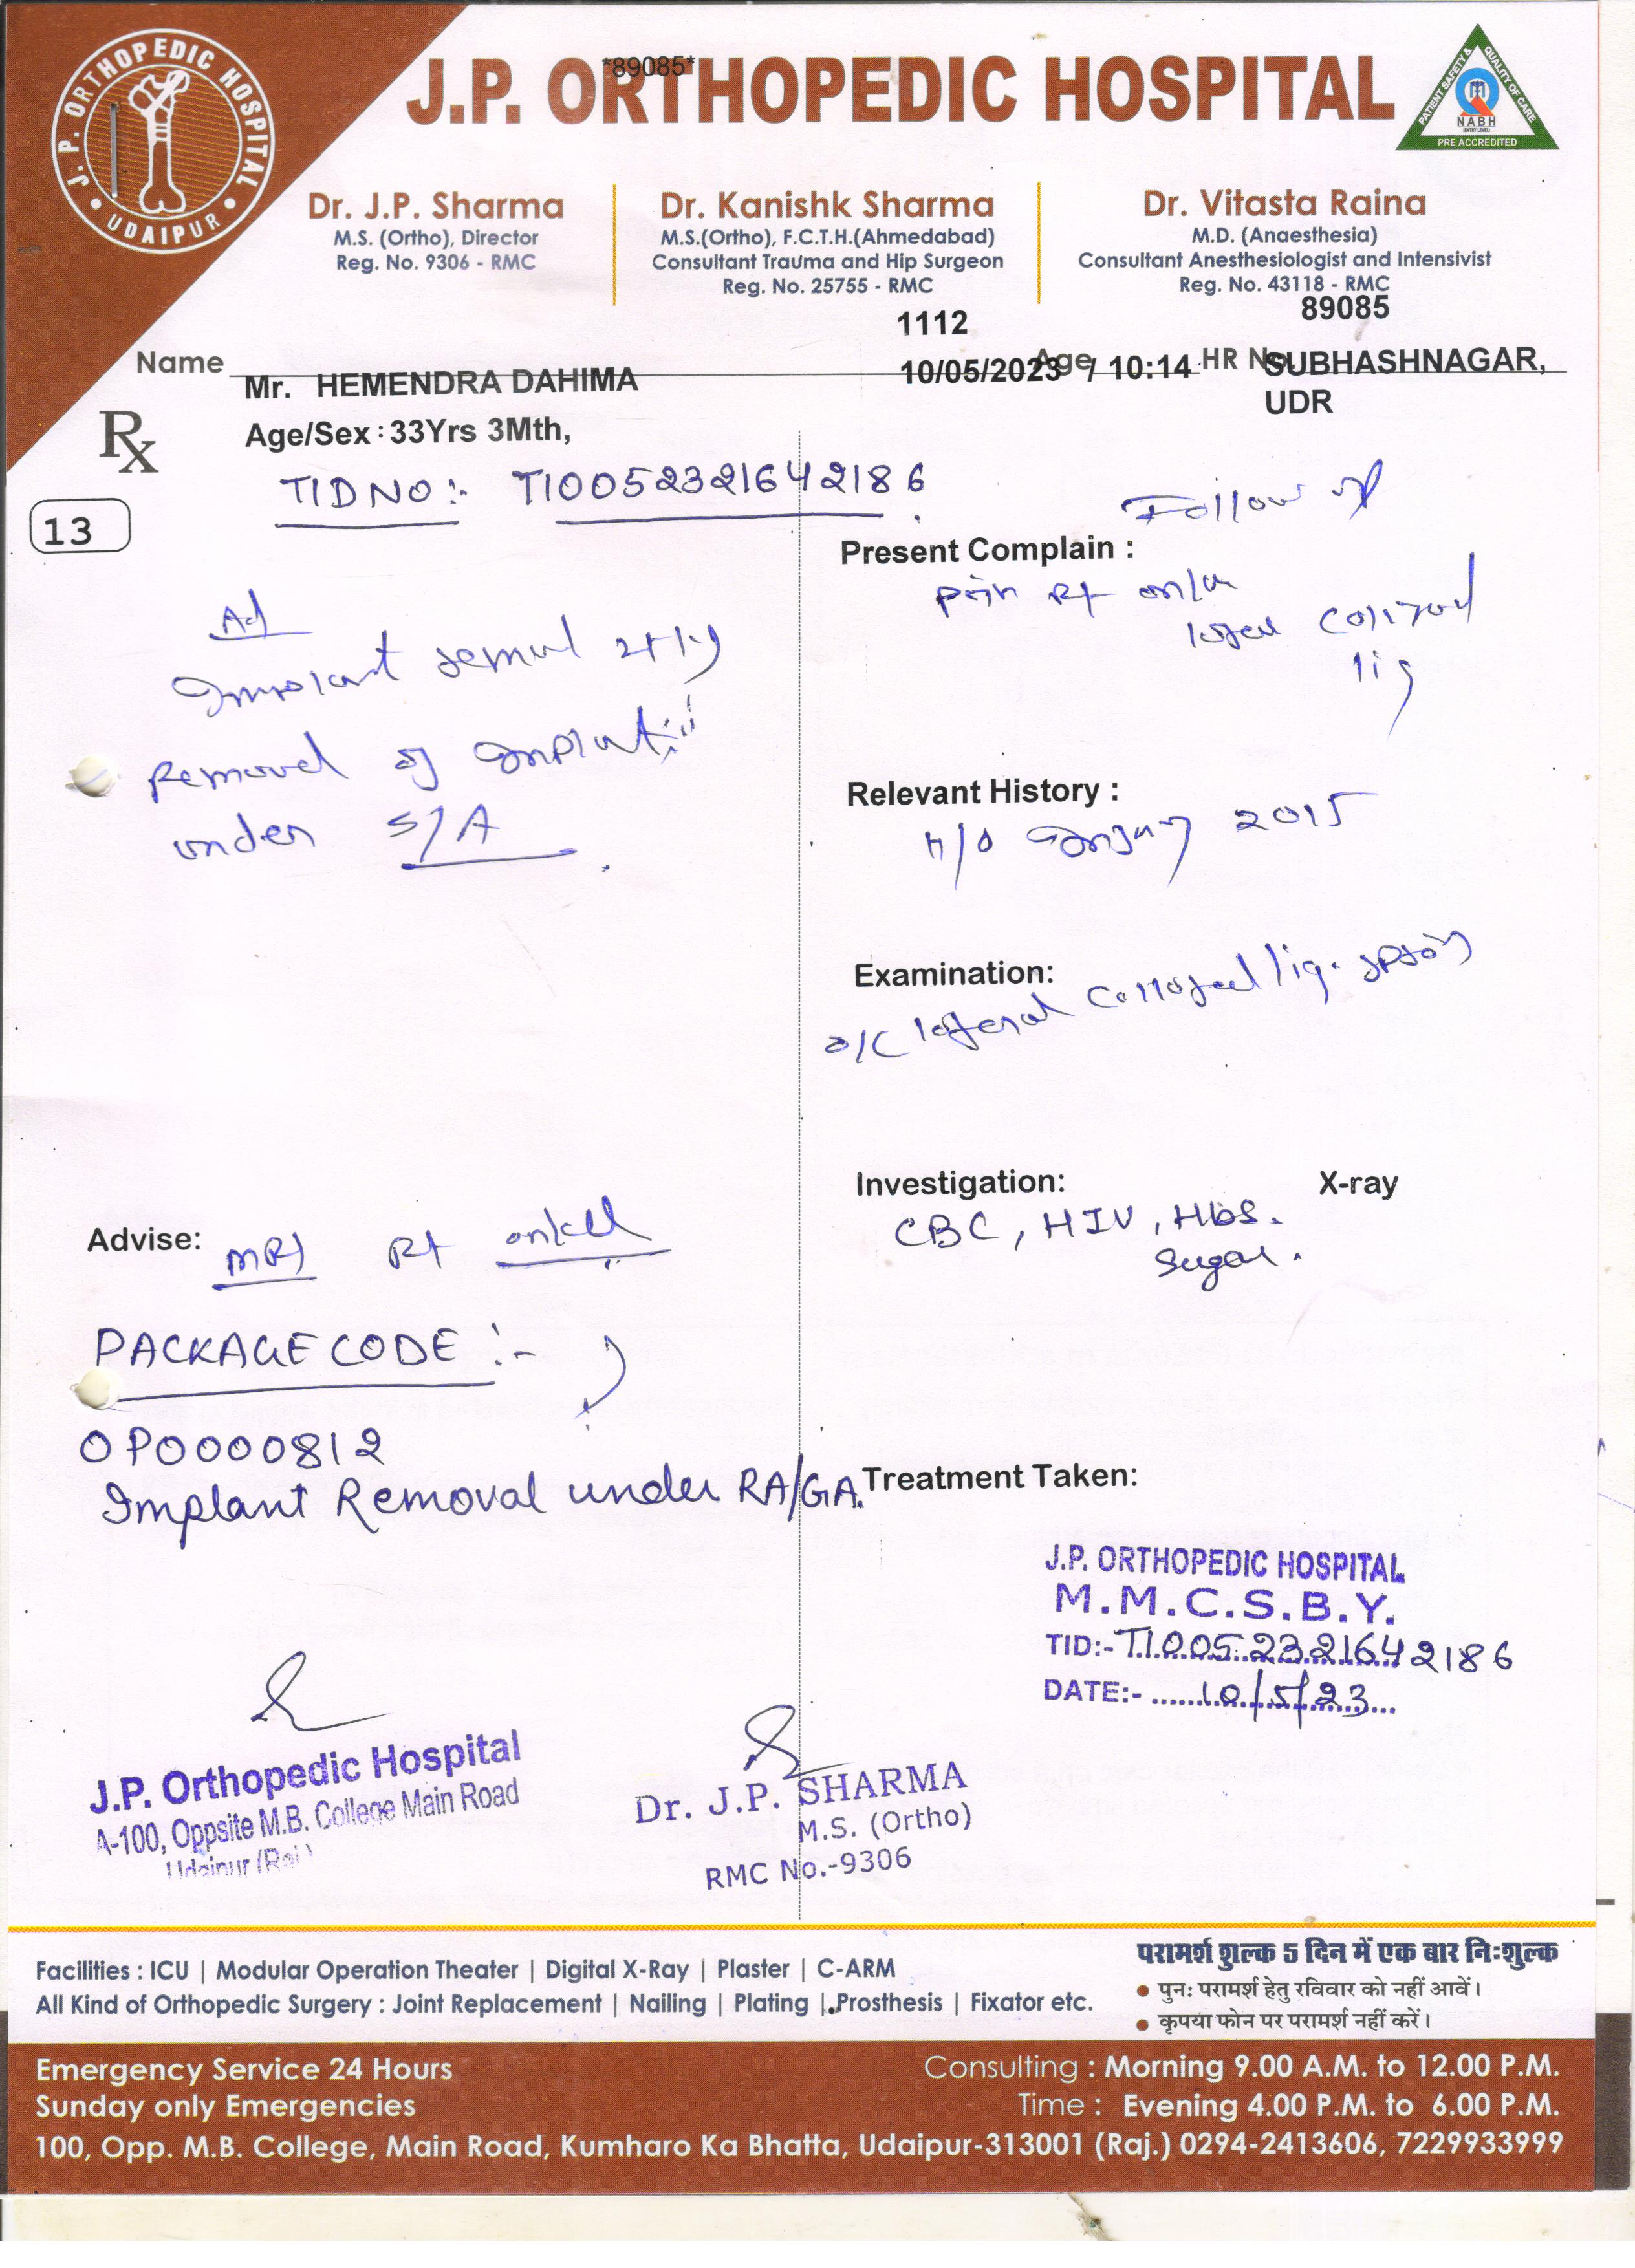 J.P. ORTHOPEDIC HOSPITAL
UDAIPUR
J.P. ORTHOPEDIC HOSPITAL
*89085*
PATIENT SAFETY & QUALITY OF CARE
NABH
(ENTRY LEVEL)
PRE ACCREDITED
Dr. J.P. Sharma
M.S. (Ortho), Director
Reg. No. 9306 - RMC
Dr. Kanishk Sharma
M.S.(Ortho), F.C.T.H.(Ahmedabad)
Consultant Trauma and Hip Surgeon
Reg. No. 25755 - RMC
Dr. Vitasta Raina
M.D. (Anaesthesia)
Consultant Anesthesiologist and Intensivist
Reg. No. 43118 - RMC
1112
89085
Name Mr. HEMENDRA DAHIMA
10/05/2023 / 10:14
Age
HR No
SUBHASHNAGAR,
UDR
Rx
Age/Sex : 33Yrs 3Mth,
TID NO :- T10052321642186
13
Follow up
Present Complain :
Pain Rt
lig
Ad
Implant
Removal of Implant
under S/A
Relevant History :
H/O Injury 2015
Examination:
O/C lateral collateral lig.
Investigation:
X-ray
CBC, HIV, Hbs.
Sugar.
Advise: MRI Rt ankle
PACKAGE CODE :-
OP0000812
Implant Removal under RA/GA.
Treatment Taken:
J.P. ORTHOPEDIC HOSPITAL
M.M.C.S.B.Y.
TID:- T10052321642186
DATE:- 10/5/23
J.P. Orthopedic Hospital
A-100, Oppsite M.B. College Main Road
Udaipur (Raj.)
Dr. J.P. SHARMA
M.S. (Ortho)
RMC No.-9306
Facilities : ICU | Modular Operation Theater | Digital X-Ray | Plaster | C-ARM
All Kind of Orthopedic Surgery : Joint Replacement | Nailing | Plating | Prosthesis | Fixator etc.
परामर्श शुल्क 5 दिन में एक बार निःशुल्क
• पुनः परामर्श हेतु रविवार को नहीं आवें।
• कृपया फोन पर परामर्श नहीं करें।
Emergency Service 24 Hours
Sunday only Emergencies
Consulting : Morning 9.00 A.M. to 12.00 P.M.
Time : Evening 4.00 P.M. to 6.00 P.M.
100, Opp. M.B. College, Main Road, Kumharo Ka Bhatta, Udaipur-313001 (Raj.) 0294-2413606, 7229933999